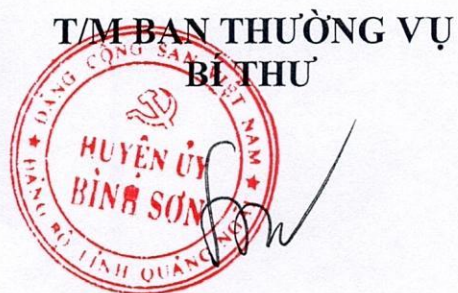 T/M BAN THƯỜNG VỤ
BÍ THƯ
ĐẢNG CỘNG SẢN VIỆT NAM
HUYỆN ỦY
BÌNH SƠN
ĐẢNG BỘ TỈNH QUẢNG NGÃI